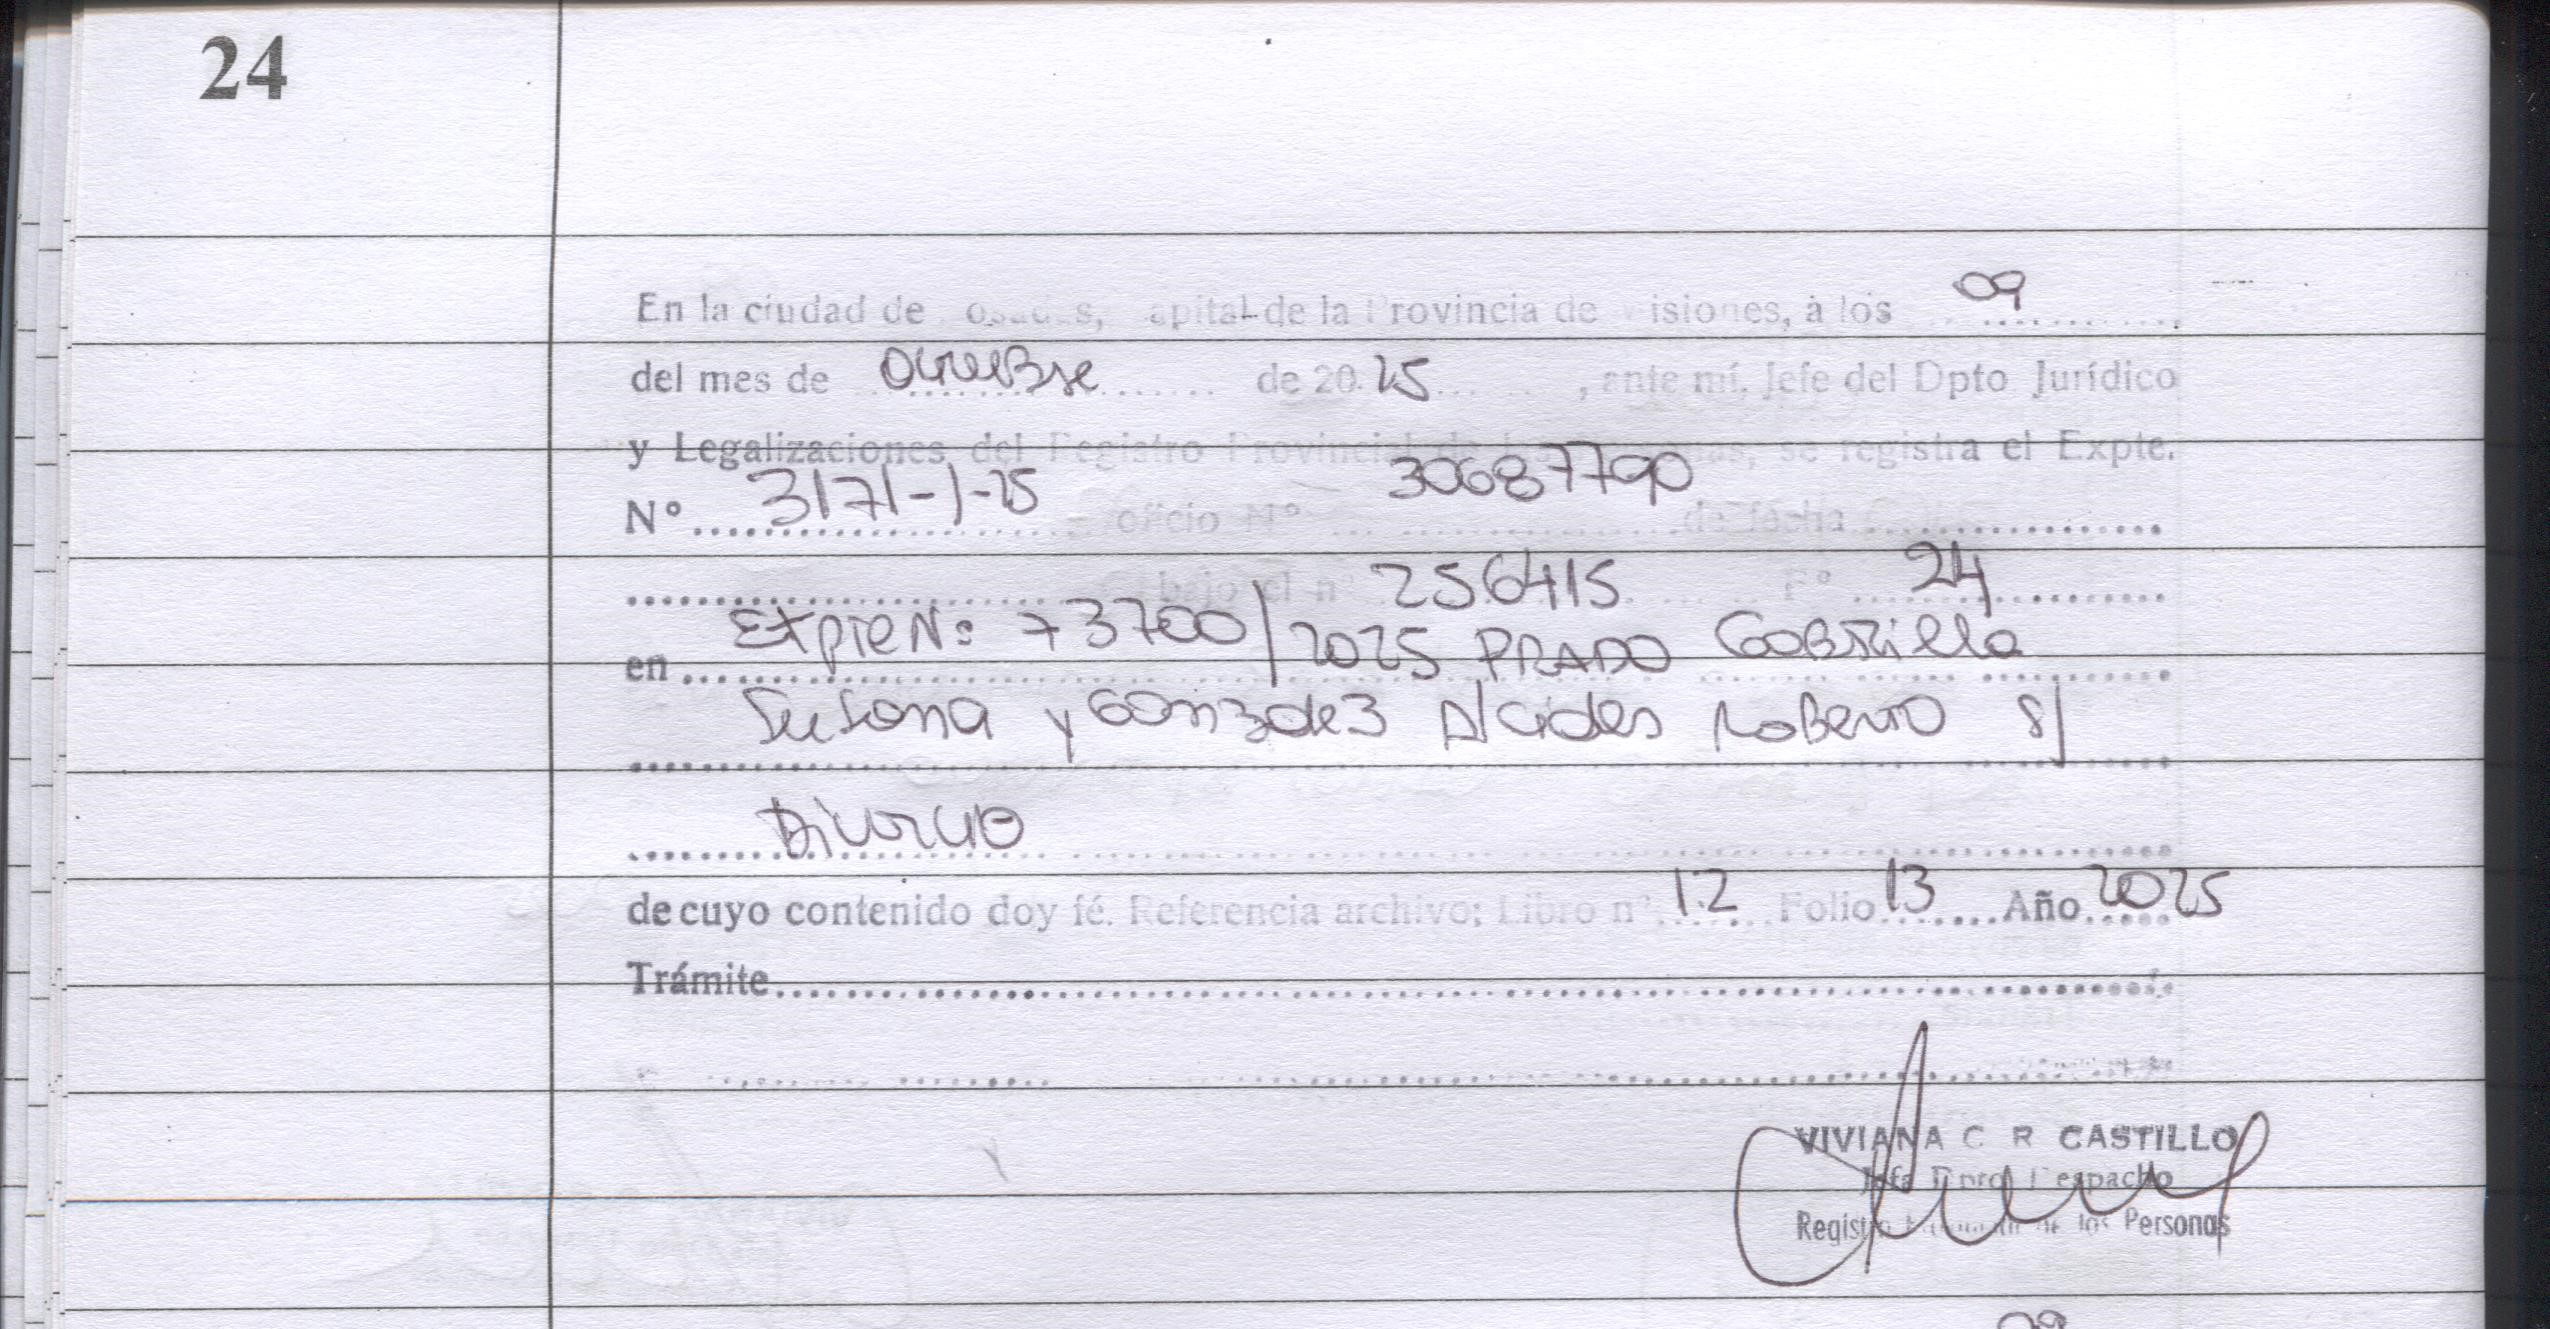 24
En la ciudad de osadas, apital de la Provincia de isiones, a los 09
del mes de octubre de 20 25, ante mí, Jefe del Dpto Jurídico
y Legalizaciones del Registro Provincial de las Personas, se registra el Expte.
N° 3171-1-25 oficio N° 30687790 de fecha
bajo el n° 256415 F° 24
en Expte N: 73700/2025 PRADO Gabriella
Susana y Gonzalez Alcides Roberto s/
Divorcio
de cuyo contenido doy fé. Referencia archivo; Libro n° 12 Folio 13 Año 2025
Trámite
VIVIANA C R CASTILLO
Jefa Dpto Despacho
Registro de los Personas
09